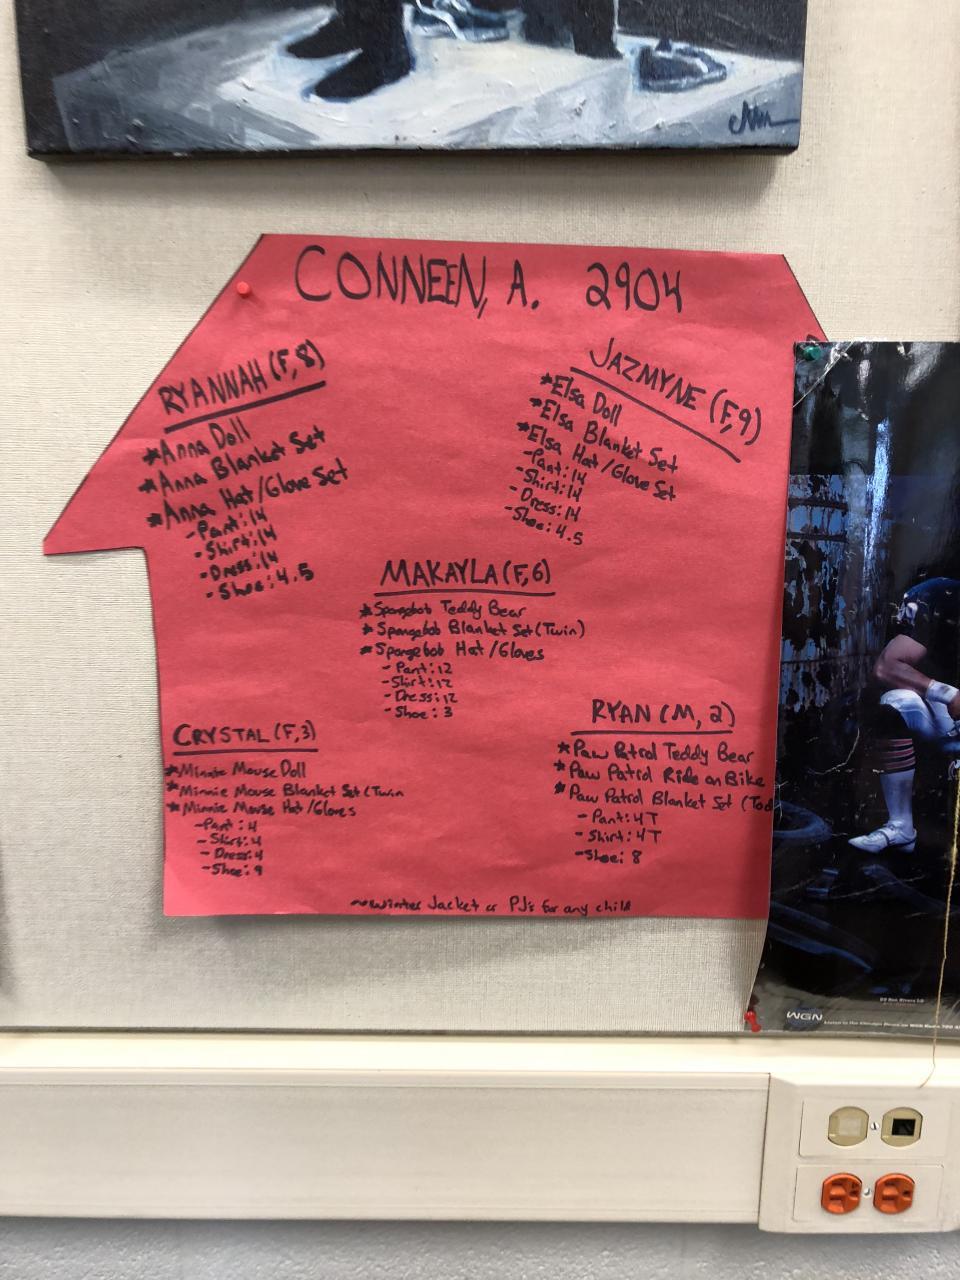 CONNEEN, A. 2904
RYANNAH (F, 8)
*Anna Doll
*Anna Blanket Set
*Anna Hat/Glove Set
-Pant: 14
-Shirt: 14
-Dress: 14
-Shoe: 4.5
JAZMYNE (F, 9)
*Elsa Doll
*Elsa Blanket Set
*Elsa Hat/Glove Set
-Pant: 14
-Shirt: 14
-Dress: 14
-Shoe: 4.5
MAKAYLA (F, 6)
*Spongebob Teddy Bear
*Spongebob Blanket Set (Twin)
*Spongebob Hat/Gloves
-Pant: 12
-Shirt: 12
-Dress: 12
-Shoe: 3
CRYSTAL (F, 3)
*Minnie Mouse Doll
*Minnie Mouse Blanket Set (Twin
*Minnie Mouse Hat/Gloves
-Pant: 4
-Shirt: 4
-Dress: 4
-Shoe: 9
RYAN (M, 2)
*Paw Patrol Teddy Bear
*Paw Patrol Ride on Bike
*Paw Patrol Blanket Set (Tod
-Pant: 4T
-Shirt: 4T
-Shoe: 8
~Winter Jacket or PJ's for any child
WGN